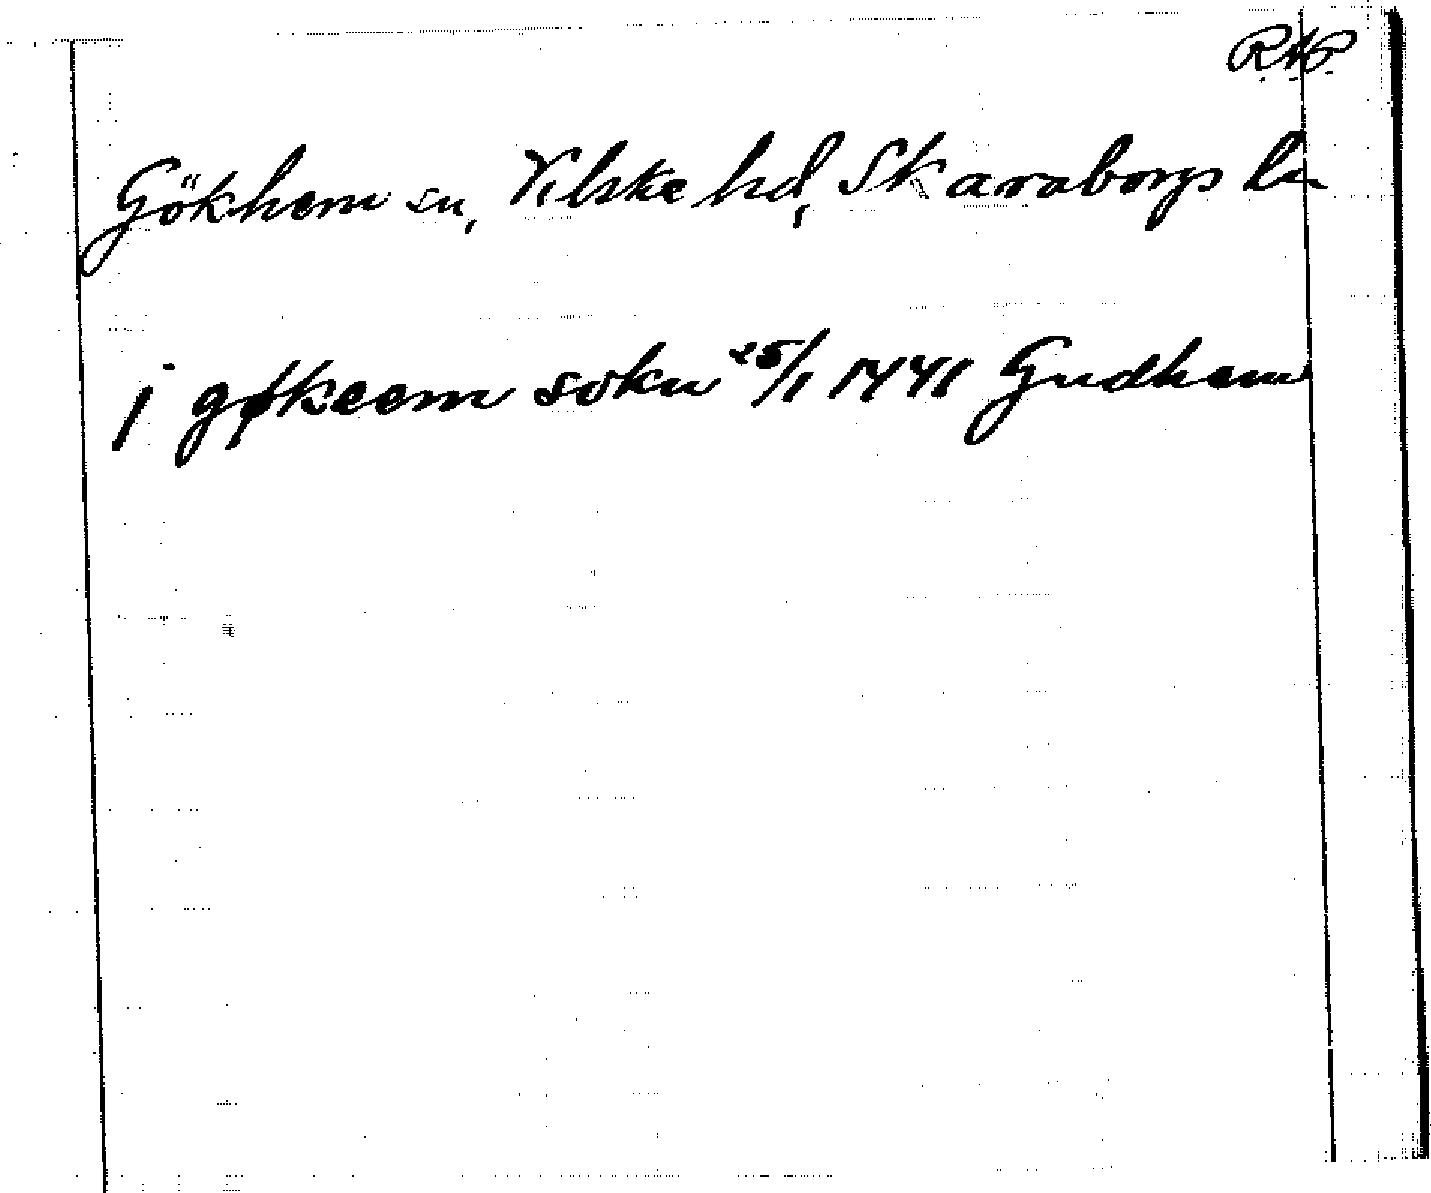 RAP
Gökhem sn, Vilske hd, Skaraborgs ln
j gøkeem sokn 25/1 1441 Gudhem